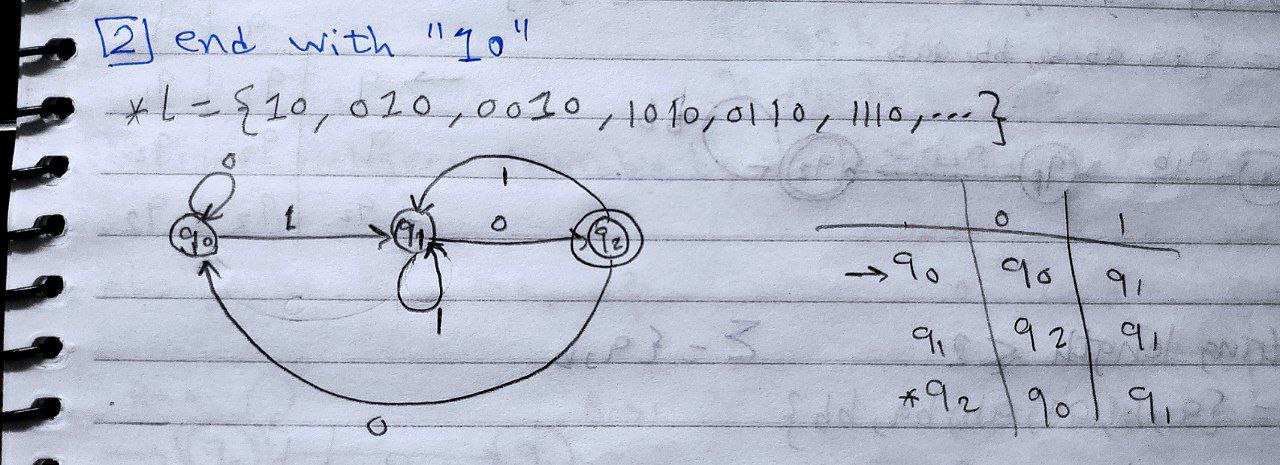 2 end with "10"
* L = {10, 010, 0010, 1010, 0110, 1110, ...}
0
1
1
q0
q1
0
q2
1
0
0 1
→ q0 q0 q1
q1 q2 q1
* q2 q0 q1